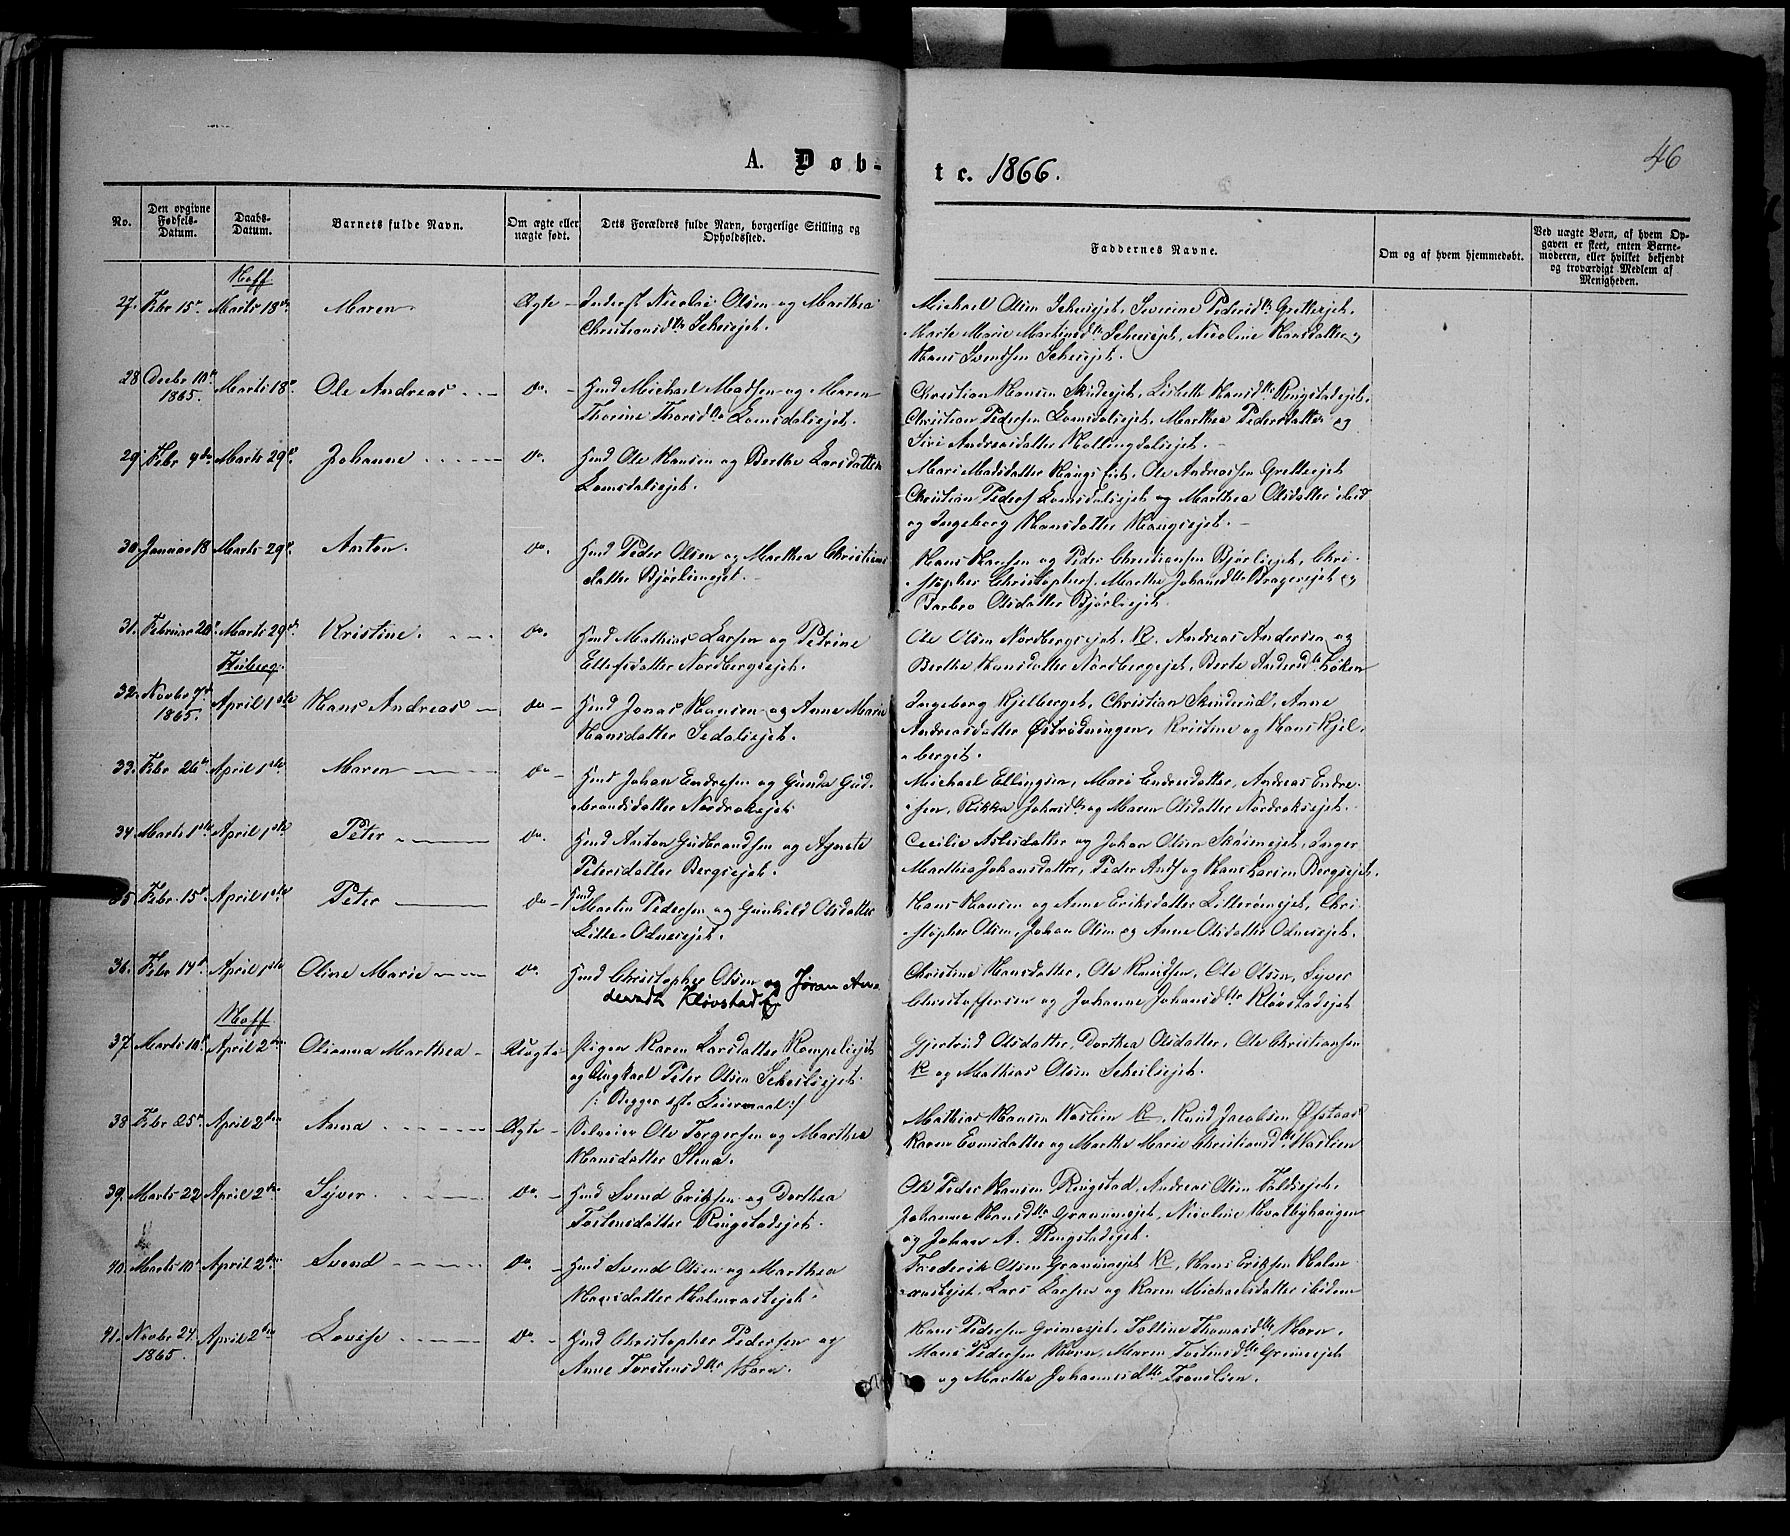 46
A. Døb-
t c. 1866.
No.
Den opgivne Fødsels-Datum.
Daabs-Datum.
Barnets fulde Navn.
Om ægte eller uægte født.
Dets Forældres fulde Navn, borgerlige Stilling og Opholdssted.
Faddernes Navne.
Om og af hvem hjemmedøbt.
Ved uægte Børn, af hvem Opgaven er skeet, enten Barnemoderen, eller hvilket bekjendt og troværdigt Medlem af Menigheden.
Hoff
27. Febr 15de Marts 18de Maren Ægte Inderst Nicolai Olsen og Marthea
Christiansdtr Scheiejet.
Michael Olsen Scheiejet, Severine Pedersdtr Gretteejet,
Marte Marie Martinsdtr Scheiejet, Nicoline Hansdatter og
Hans Svendsen Scheiejet.
28 Decbr 10de 1865. Marts 18de Ole Andreas do Hmd Michael Madsen og Maren
Thorine Thorsdtr Lomsdalsejet.
Christian Hansen Lisbeth Hansdtr Ringstadejet,
Christian Pedersen Lomsdalsejet, Marthea Pedersdatter og
Siri Andreasdatter
29 Febr 9de Marts 29de Johanne do. Hmd Ole Hansen og Berthe Larsdatter
Lomsdalsejet.
Mari Madsdatter Ole Andreassen Gretteejet
Christian Peders Lomsdalsejet og Marthea Olsdatter ibid
og Ingeborg Hansdatter Haugsejet.
30 Januar 18 Marts 29de Anton. do. Hmd Peder Olsen og Marthea Christians
datter Bjørliejet.
Hans Hansen og Peder Christiansen Bjørliejet, Chri-
stopher Christophers, Marthe Johansdtr Brageejet og
Barbro Olsdatter Bjørliejet.
31. Februar 20de Marts 29de Kristine. do. Hmd Mathias Larsen og Petrine
Ellefsdatter Nordbergsejet.
Ole Olsen Nordbergsejet, K. Andreas Andersen og
Berthe Hansdatter Nordbergejet, Berte Andersdtr Løken
Fluberg.
32. Novbr 9de 1865. April 1ste Hans Andreas do Hmd Jonas Hansen og Anne Marie
Hansdatter Sedalsejet.
Ingeborg Kjelberget, Christian Skinderud, Anne
Andreasdatter Østrudningen, Kristine og Hans Kjel-
berget.
33. Febr 26de April 1ste Maren do Hmd Johan Endresen og Gunda Gud-
brandsdatter Nordrakejet.
Michael Ellingsen, Mari Endresdatter, Andreas Endre-
sen, Rikka Johansdtr og Maren Olsdatter Nordrakejet.
34 Marts 1ste April 1ste Peter do Hmd Anton Gudbrandsen og Agnete
Petersdatter Bergsejet.
Cecilie Aslesdatter og Johan Olsen Skoiensejet, Inger
Marthea Johansdatter, Peder Ands og Hans Larsen Bergsejet.
35 Febr 15de April 1ste Peter do Hmd
Martin Pedersen og Gunhild Olsdatter
Lille-Odnesejet.
Hans Hansen og Anne Eriksdatter Chri-
stopher Olsen, Johan Olsen og Anne Olsdatter Odnesejet.
36. Febr 14de April 1ste Oline Marie do. Hmd Christopher Olsen og Jøran Am-
dersdt. Kløvstade.
Christine Hansdatter, Ole Knudsen, Ole Olsen, Syver
Christoffersen og Johanne Johansdtr Kløvstadejet
Hoff
37. Marts 10de April 2den Olianna Marthea Uægte Pigen Karen Larsdatter Rompeliejet
og Ungkarl Peter Olsen Scheiliejet.
/: Begges 1ste Leiermaal :/
Gjertrud Olsdatter, Dorthea Olsdatter, Ole Christiansen
K og Mathias Olsen Scheiliejet.
38 Febr 25de April 2den Anna Ægte Selveier Ole Torgersen og Marthea
Hansdatter Stena.
Mathias Hansen Haslien K, Knud Jacobsen Østaas
Karen Evensdatter og Marthe Marie Christiansdtr Haslien
39. Marts 22 April 2den Syver do. Hmd Svend Eriksen og Dorthea
Tostensdatter Ringstadejet.
Ole Peder Hansen Ringstad, Andreas Olsen
Johanne Hansdtr Grannesejet, Nicoline Kvalbyhaugen
og Johan A. Ringstadejet.
40. Marts 10de April 2den Svend do. Hmd Svend Olsen og Marthea
Hansdatter Halmrastejet.
Frederik Olsen Grannesejet K, Hans Eriksen Halm-
rastejet, Lars Larsen og Karen Michaelsdatter ibidem
41. Novbr 24. 1865. April 2den Lovise do. Hmd Christopher Pedersen og
Anne Torstensdtr Horn.
Hans Pedersen Grimesejet, Tolline Thomasdtr Horn,
Hans Pedersen Horn, Maren Tostensdtr Grimesejet
og Marthe Johannesdtr